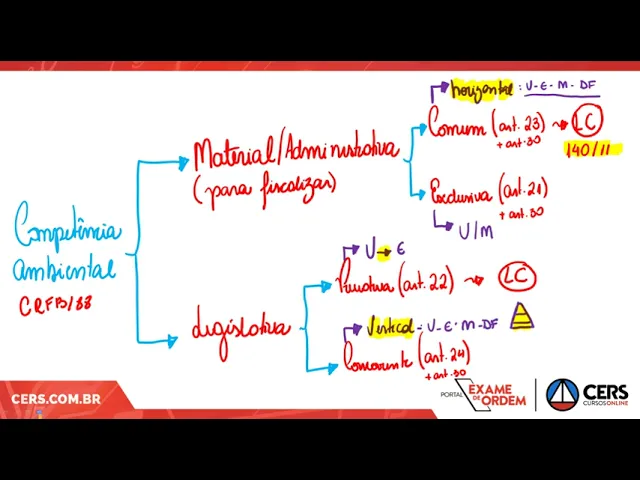 horizontal : U-E-M-DF
Comum (art. 23) → LC
+ art. 30
140/11
Material/Administrativa
(para fiscalizar)
Exclusiva (art. 21)
+ art. 30
U/M
Competência
ambiental
CRFB/88
U → E
Privativa (art. 22) → LC
Legislativa
Vertical - U-E-M-DF
Concorrente (art. 24)
+ art. 30
CERS.COM.BR
PORTAL EXAME DE ORDEM
CERS
CURSOS ONLINE